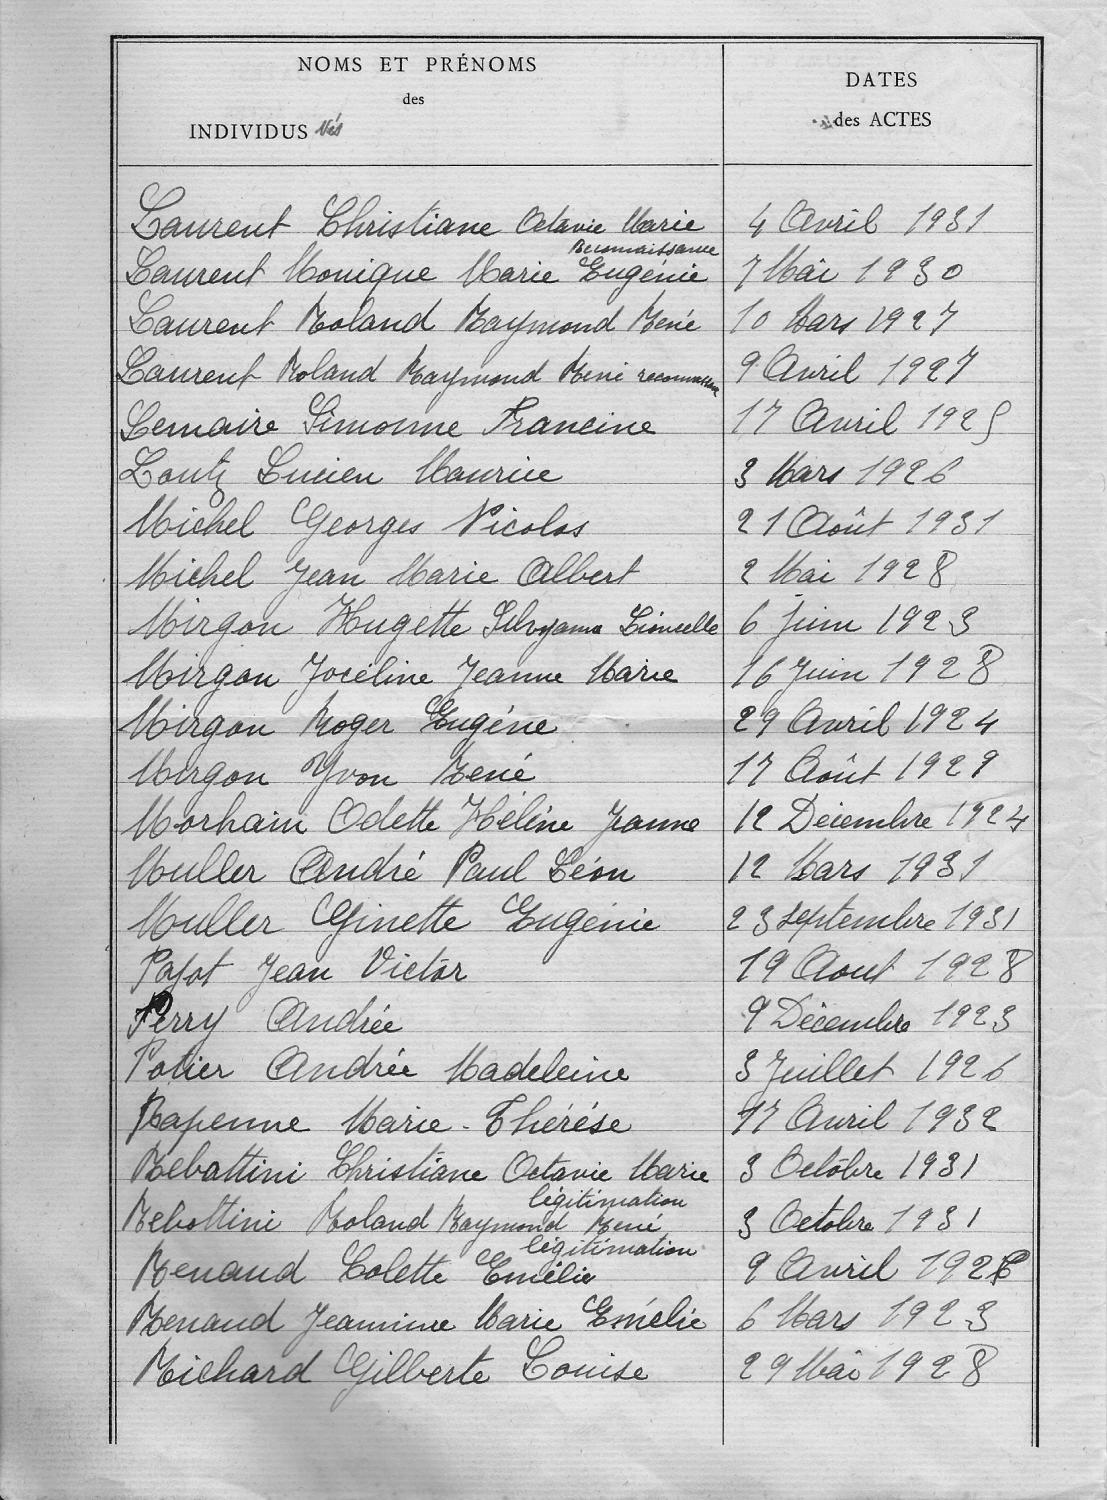 NOMS ET PRÉNOMS
des
INDIVIDUS Nés
DATES
des ACTES
Laurent Christiane Octavie Marie 4 Avril 1931
Reconnaissance
Laurent Monique Marie Eugénie 7 Mai 1930
Laurent Roland Raymond René 10 Mars 1927
Laurent Roland Raymond René 9 Avril 1927
Lemaire Simonne Francine 17 Avril 1925
Loutz Lucien Maurice 3 Mars 1926
Michel Georges Nicolas 21 Août 1931
Michel Jean Marie Albert 2 Mai 1928
Mirgon Hugette 6 Juin 1923
Mirgon Jocéline Jeanne Marie 16 Juin 1928
Mirgon Roger Eugéne 29 Avril 1924
Mirgon Yvon René 17 Août 1929
Morhain Odette Héléne Jeanne 12 Décembre 1924
Muller André Paul Léon 12 Mars 1931
Muller Ginette Eugénie 23 Septembre 1931
Jean Victor 19 Aout 1928
Perry Andrée 9 Décembre 1923
Potier Andrée Madeleine 3 Juillet 1926
Rapenne Marie-Thérése 17 Avril 1932
Rebattini Christiane Octavie Marie 3 Octobre 1931
légitimation
Rebottini Roland Raymond René 3 Octobre 1931
légitimation
Renaud Colette Emélie 9 Avril
Renaud Jeannine Marie Emélie 6 Mars 1923
Richard Gilberte Louise 29 Mai 1928